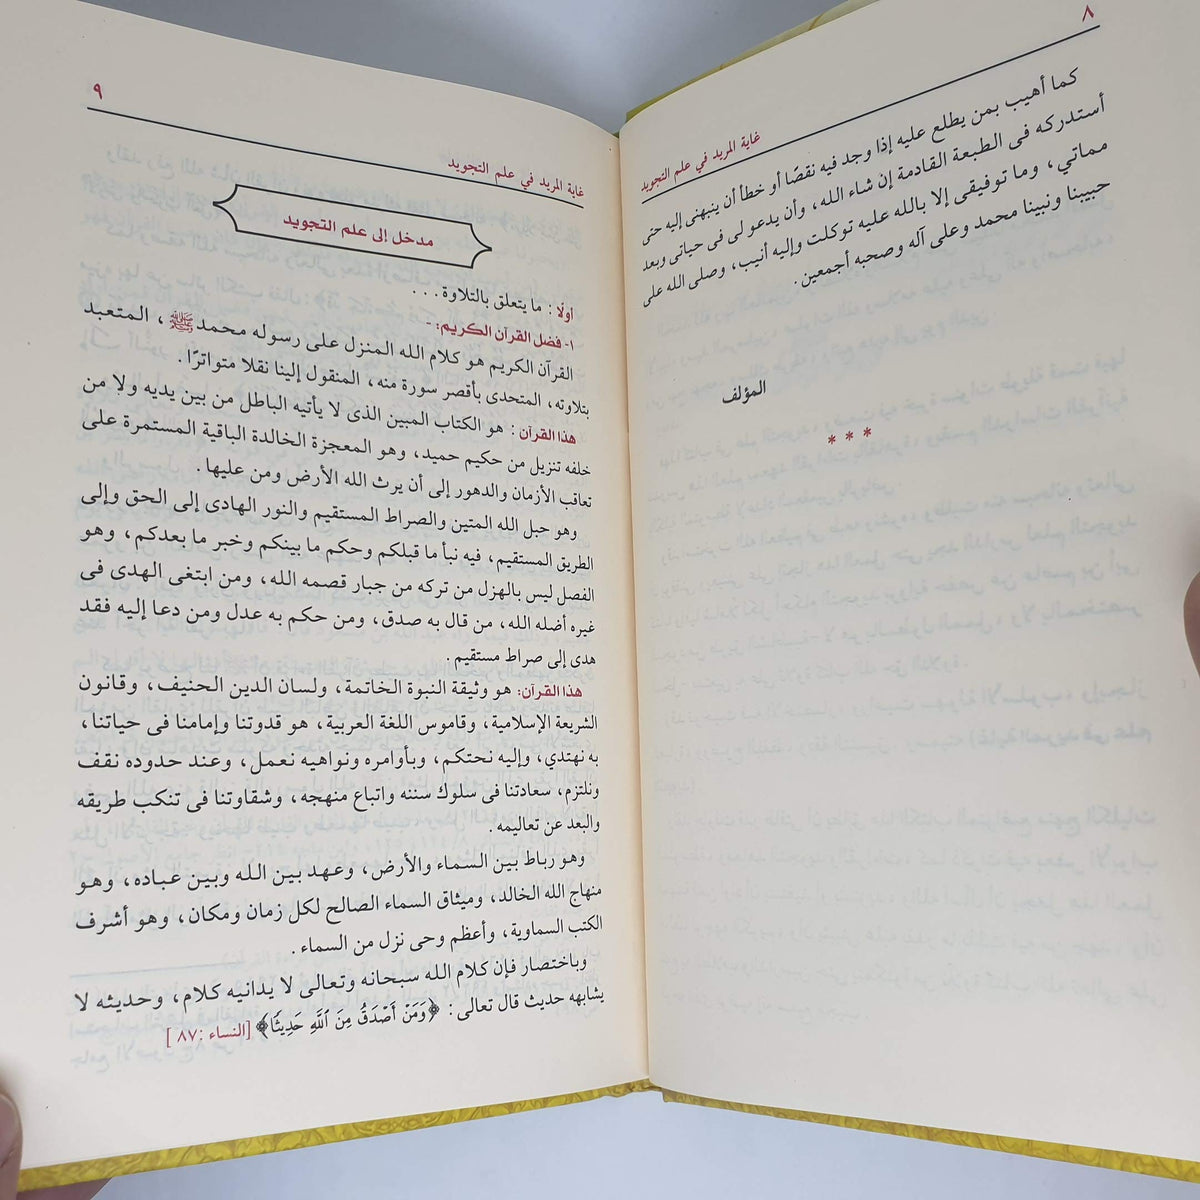 ٨
غاية المريد في علم التجويد
كما أهيب بمن يطلع عليه إذا وجد فيه نقصًا أو خطأ أن ينبهنى إليه حتى
أستدركه فى الطبعة القادمة إن شاء الله، وأن يدعو لى فى حياتى وبعد
مماتي، وما توفيقى إلا بالله عليه توكلت وإليه أنيب، وصلى الله على
حبيبنا ونبينا محمد وعلى آله وصحبه أجمعين.
المؤلف
* * *
٩
غاية المريد في علم التجويد
مدخل إلى علم التجويد
أولًا : ما يتعلق بالتلاوة . . .
١- فضل القرآن الكريم: -
القرآن الكريم هو كلام الله المنزل على رسوله محمد ﷺ، المتعبد
بتلاوته، المتحدى بأقصر سورة منه، المنقول إلينا نقلا متواترًا.
هذا القرآن : هو الكتاب المبين الذى لا يأتيه الباطل من بين يديه ولا من
خلفه تنزيل من حكيم حميد، وهو المعجزة الخالدة الباقية المستمرة على
تعاقب الأزمان والدهور إلى أن يرث الله الأرض ومن عليها.
وهو حبل الله المتين والصراط المستقيم والنور الهادى إلى الحق وإلى
الطريق المستقيم، فيه نبأ ما قبلكم وحكم ما بينكم وخبر ما بعدكم، وهو
الفصل ليس بالهزل من تركه من جبار قصمه الله، ومن ابتغى الهدى فى
غيره أضله الله، من قال به صدق، ومن حكم به عدل ومن دعا إليه فقد
هدى إلى صراط مستقيم.
هذا القرآن: هو وثيقة النبوة الخاتمة، ولسان الدين الحنيف، وقانون
الشريعة الإسلامية، وقاموس اللغة العربية، هو قدوتنا وإمامنا فى حياتنا،
به نهتدي، وإليه نحتكم، وبأوامره ونواهيه نعمل، وعند حدوده نقف
ونلتزم، سعادتنا فى سلوك سننه واتباع منهجه، وشقاوتنا فى تنكب طريقه
والبعد عن تعاليمه.
وهو رباط بين السماء والأرض، وعهد بين الله وبين عباده، وهو
منهاج الله الخالد، وميثاق السماء الصالح لكل زمان ومكان، وهو أشرف
الكتب السماوية، وأعظم وحى نزل من السماء.
وباختصار فإن كلام الله سبحانه وتعالى لا يدانيه كلام، وحديثه لا
يشابهه حديث قال تعالى: ﴿وَمَنْ أَصْدَقُ مِنَ ٱللَّهِ حَدِيثًا﴾ [النساء :٨٧ ]